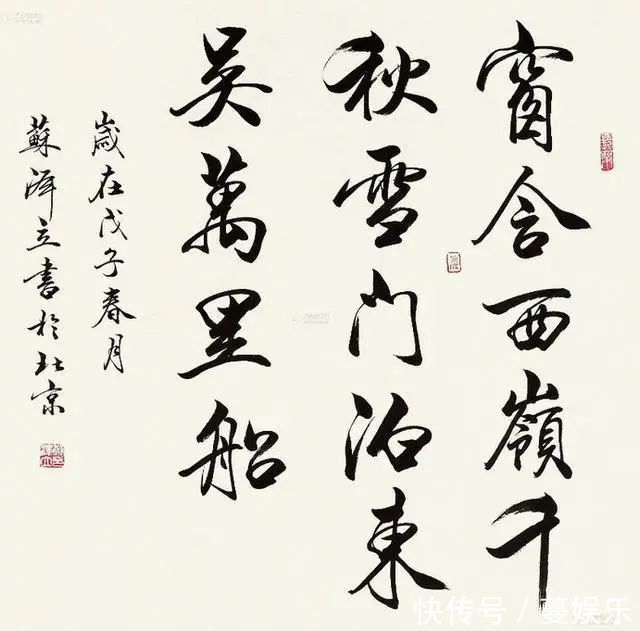 窗含西嶺千
秋雪門泊東
吴萬里船
歲在戊子春月
蘇澤立書於北京
快传号/蔓娱乐